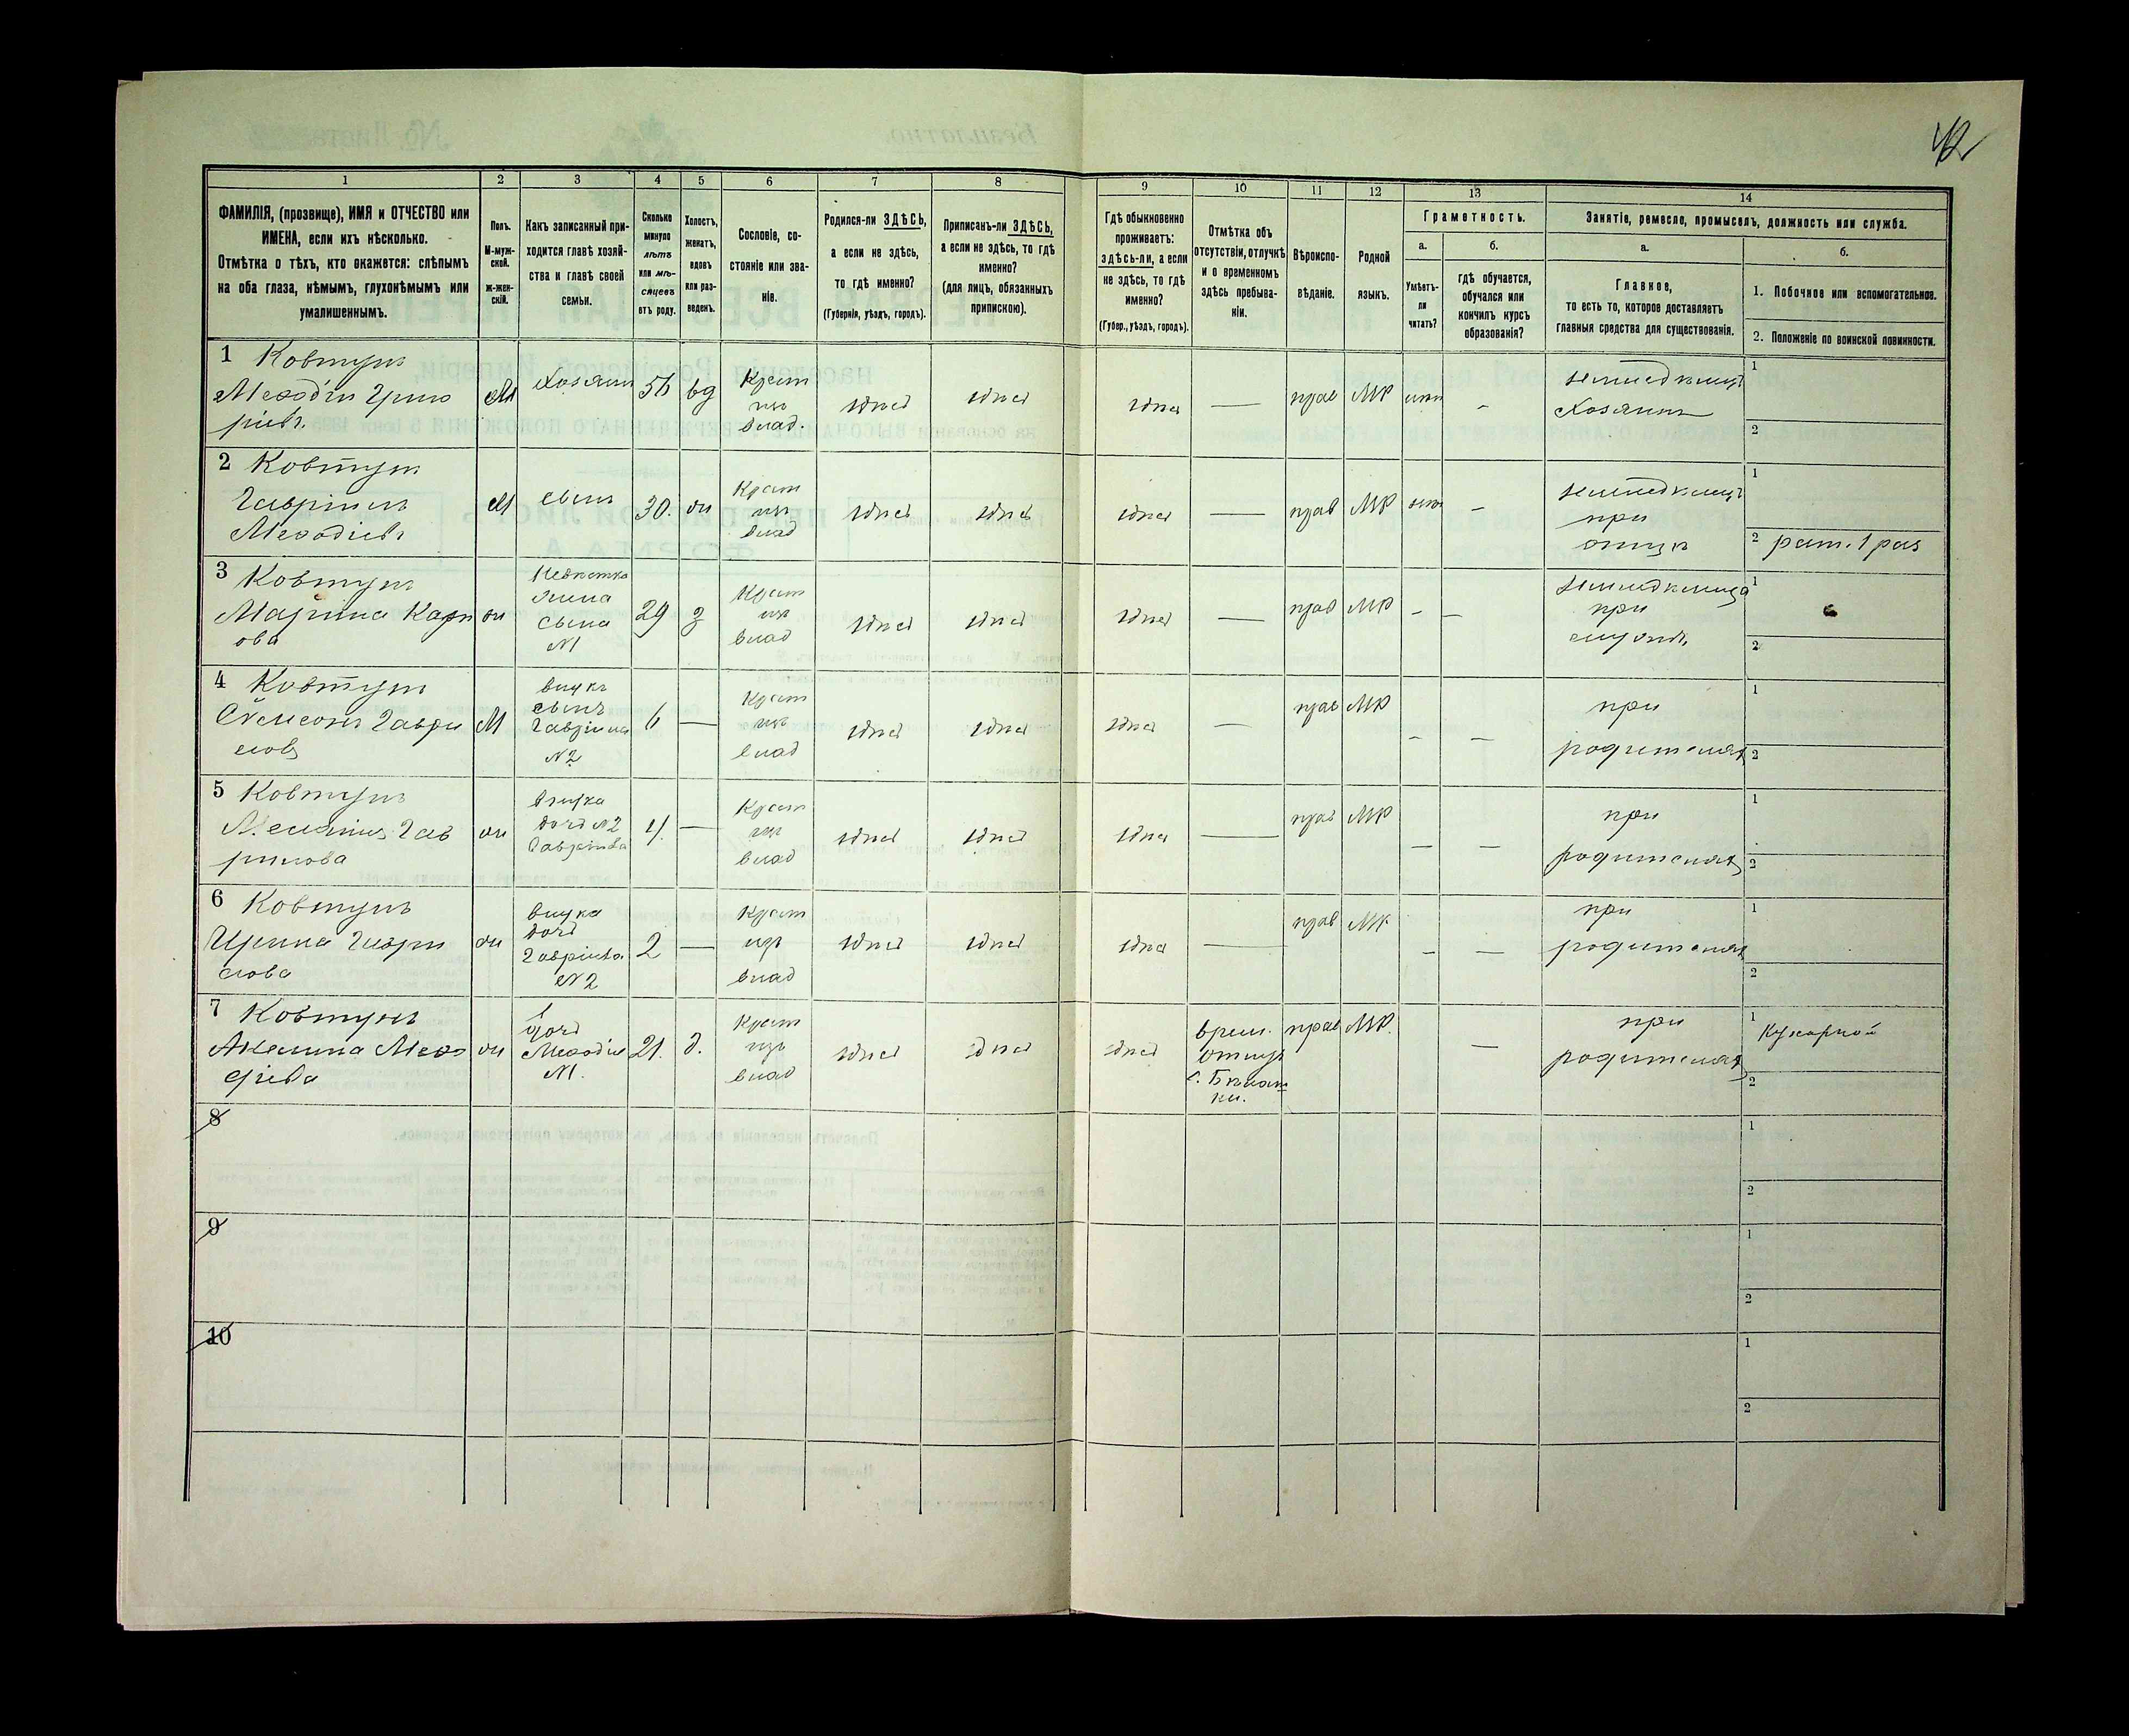 42
1 2 3 4 5 6 7 8 9 10 11 12 13 14
ФАМИЛІЯ, (прозвище), ИМЯ и ОТЧЕСТВО или
ИМЕНА, если ихъ нѣсколько.
Отмѣтка о тѣхъ, кто окажется: слѣпымъ
на оба глаза, нѣмымъ, глухонѣмымъ или
умалишеннымъ.
Полъ.
М-муж-
ской.
ж-жен-
скій.
Какъ записанный при-
ходится главѣ хозяй-
ства и главѣ своей
семьи.
Сколько
минуло
лѣтъ
или мѣ-
сяцевъ
отъ роду.
Холостъ,
женатъ,
вдовъ
или раз-
веденъ.
Сословіе, со-
стояніе или зва-
ніе.
Родился-ли ЗДѢСЬ,
а если не здѣсь,
то гдѣ именно?
(Губернія, уѣздъ, городъ).
Приписанъ-ли ЗДѢСЬ,
а если не здѣсь, то гдѣ
именно?
(для лицъ, обязанныхъ
припискою).
Гдѣ обыкновенно
проживаетъ:
здѣсь-ли, а если
не здѣсь, то гдѣ
именно?
(Губер., уѣздъ, городъ).
Отмѣтка объ
отсутствіи, отлучкѣ
и о временномъ
здѣсь пребыва-
ніи.
Вѣроиспо-
вѣданіе.
Родной
языкъ.
Грамотность.
а.
Умѣетъ-
ли
читать?
б.
гдѣ обучается,
обучался или
кончилъ курсъ
образованія?
Занятіе, ремесло, промыселъ, должность или служба.
а.
Главное,
то есть то, которое доставляетъ
главныя средства для существованія.
б.
1. Побочное или вспомогательное.
2. Положеніе по воинской повинности.
1 Ковтунъ
Меѳодій Григо
ріевъ
М
Хозяинъ
56
вд
Крест
изъ
влад.
здѣсь
здѣсь
здѣсь
—
прав
МР
—
земледѣлецъ
Хозяинъ
1
2
2 Ковтунъ
Гавріилъ
Меѳодіевъ
М
сынъ
30.
ж
Крест
изъ
влад
здѣсь
здѣсь
здѣсь
—
прав
МР
—
земледѣлецъ
при
отцѣ
1
2 рат. 1 раз
3 Ковтунъ
Марина Карп
ова
ж
Невѣстка
жена
сына
№1
29
з
Крест
изъ
влад
здѣсь
здѣсь
здѣсь
—
прав
МР
—
—
земледѣлица
при
1
2
4 Ковтунъ
Семеонъ Гаври
ловъ
М
внукъ
сынъ
Гавріила
№2
6
—
Крест
изъ
влад
здѣсь
здѣсь
здѣсь
—
прав
МР
—
—
при
родителяхъ
1
2
5 Ковтунъ
Гав
рилова
ж
внучка
дочь №2
4
—
Крест
изъ
влад
здѣсь
здѣсь
здѣсь
—
прав
МР
—
—
при
родителяхъ
1
2
6 Ковтунъ
Ирина Гаври
лова
ж
внучка
дочь
№2
2
—
Крест
изъ
влад
здѣсь
здѣсь
здѣсь
—
прав
МР
—
—
при
родителяхъ
1
2
7 Ковтунъ
Меѳо
діева
ж
дочь
Меѳодія
№1.
21.
д.
Крест
изъ
влад
здѣсь
здѣсь
здѣсь
врем.
прав
МР.
—
при
родителяхъ
1 Кухаркой
2
8
1
2
9
1
2
10
1
2